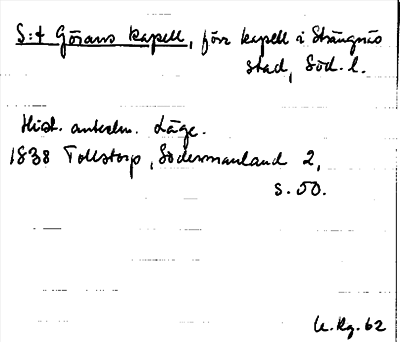 S:t Görans kapell, förr kapell i Strängnäs
stad, Söd. l.
Hist. anteckn. Läge.
1838 Tollstorp, Södermanland 2,
s. 50.
Rg. 62